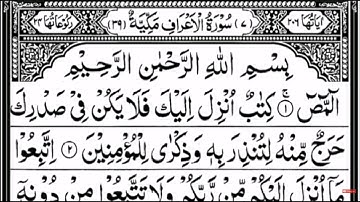 اٰيَاتُهَا ٢٠٦ (٧) سُوْرَةُ الْاَعْرَافِ مَكِّيَّةٌ (٣٩) رُكُوْعَاتُهَا ٢٤
بِسْمِ اللهِ الرَّحْمٰنِ الرَّحِيْمِ
الٓمّٓصٓ ۚ‏﴿١﴾ كِتٰبٌ اُنْزِلَ اِلَيْكَ فَلَا يَكُنْ فِيْ صَدْرِكَ
حَرَجٌ مِّنْهُ لِتُنْذِرَ بِهٖ وَذِكْرٰى لِلْمُؤْمِنِيْنَ ﴿٢﴾ اِتَّبِعُوْا
مَاۤ اُنْزِلَ اِلَيْكُمْ مِّنْ رَّبِّكُمْ وَلَا تَتَّبِعُوْا مِنْ دُوْنِهٖۤ